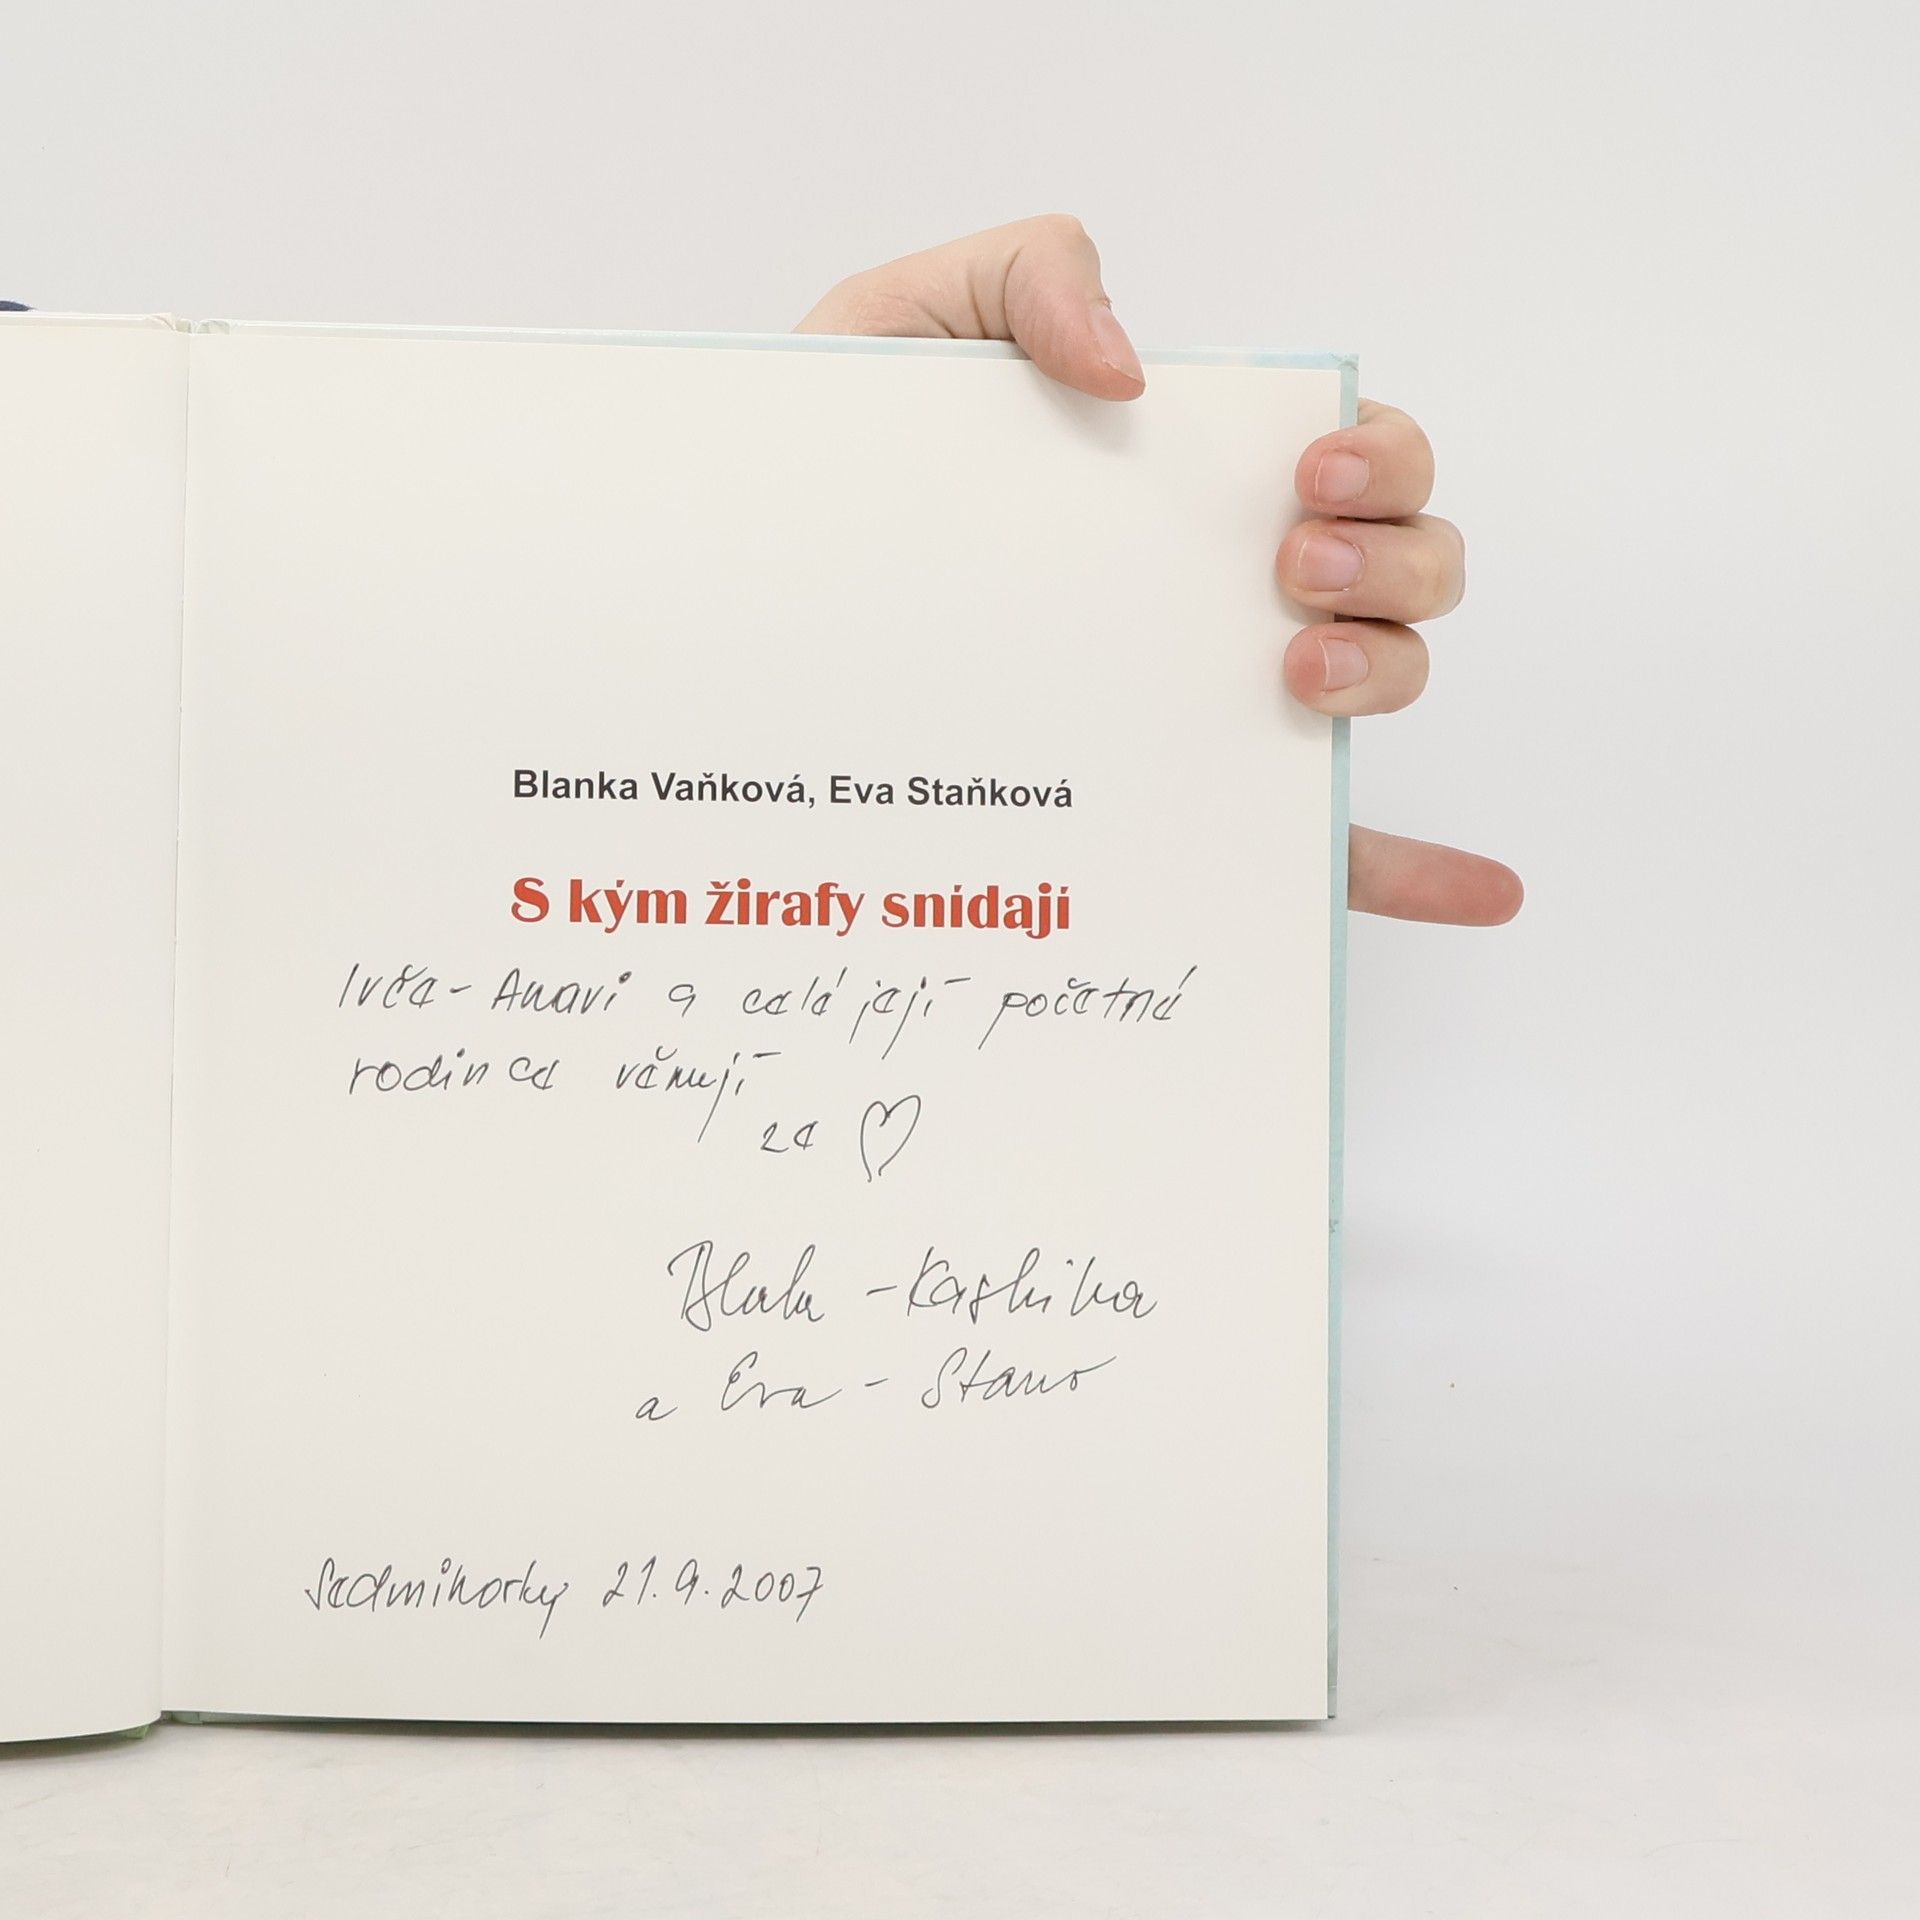 Blanka Vaňková, Eva Staňková
S kým žirafy snídají
Ivče - Anavi a celé její početné
rodince věnují
ze ♡
Blanka - Kashika
a Eva - Stano
Sedmihorky 21.9.2007